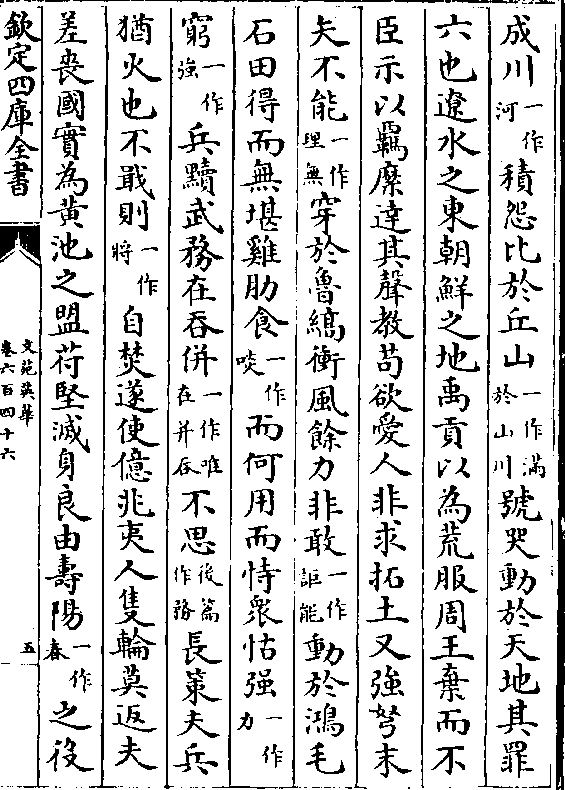 成川一作河積怨比於丘山一作滿於山川號哭動於天地其罪
六也遼水之東朝鮮之地禹貢以為荒服周王棄而不
臣示以羈縻達其聲教苟欲愛人非求拓土又強弩末
矢不能一作理無穿於魯縞衝風餘力非敢一作詎能動於鴻毛
石田得而無堪雞肋食一作啖而何用而恃衆怙强一作力
窮一作強兵黷武務在吞併一作唯在并吞不思後篇作務長策夫兵
猶火也不戢則一作將自焚遂使億兆夷人隻輪莫返夫
差喪國實為黃池之盟苻堅滅身良由壽陽一作春之役
欽定四庫全書
文苑英華
卷六百四十六
五